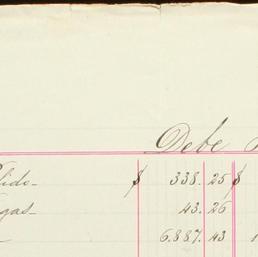 Debe
lido- $ 338.25 $
gas- 43.26
6.887.43